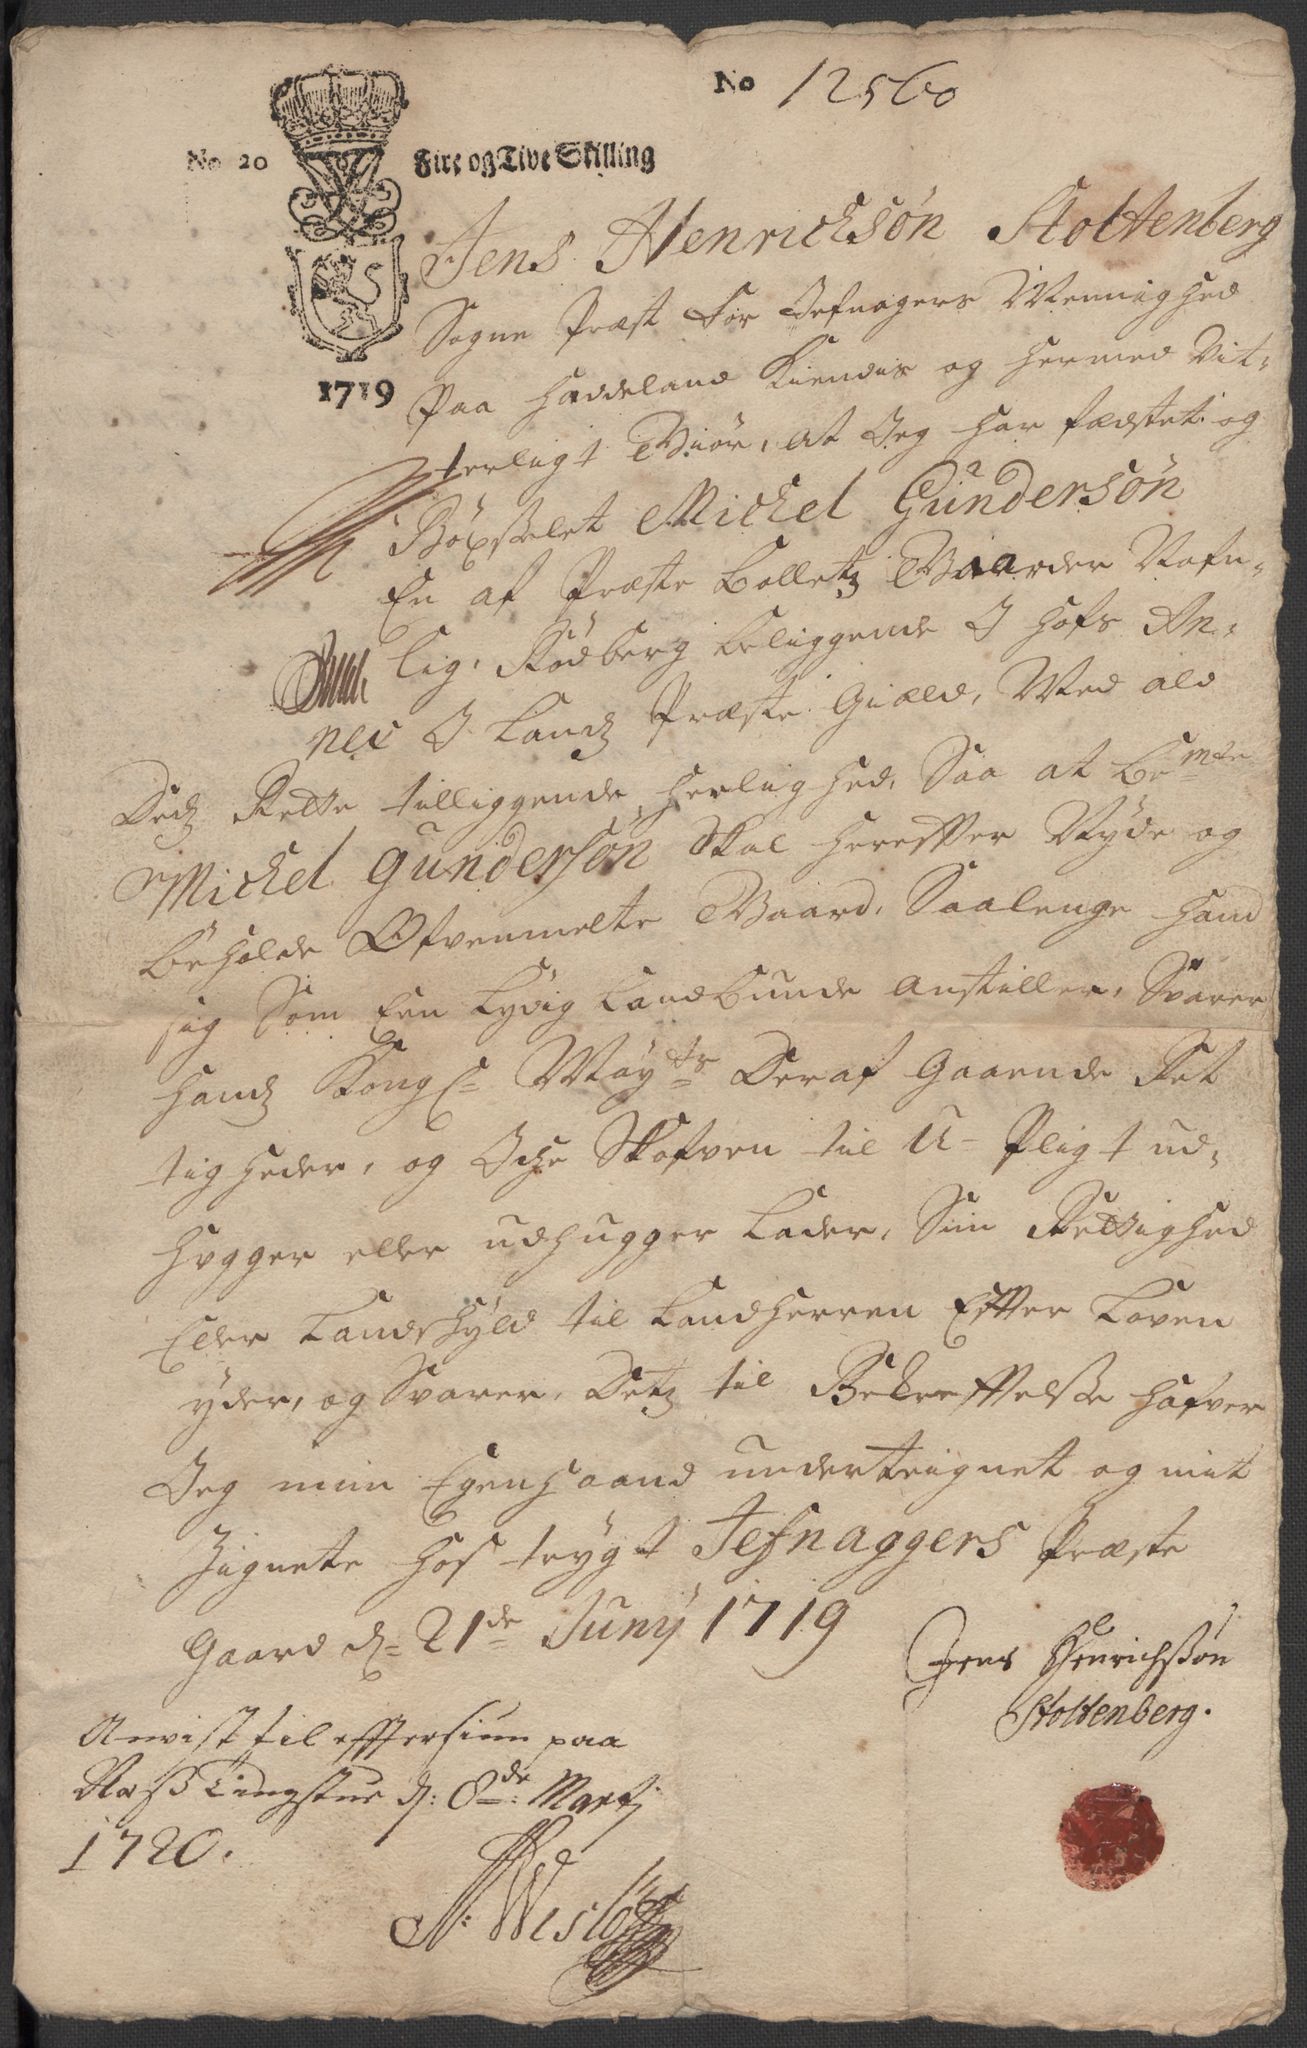 No 12560
No 20 Fire og Tive Skilling
1719
Jens Henrichsøn Stoltenberg
Sogne Præst for Jefnagers Menighed
Paa Haddeland Kiendis og hermed Vit-
terligt Giør, at Jeg har fædstet og
Böxselet Michel Gundersøn
En af Præste Bolletz Gaarder Nafn-
lig, Rødberg beliggende J Hofs An-
nex J Landz Præste Giæld, Med ald
Dedz Rette tilliggende Herlighed, Saa at be.mte
Michel Gundersøn Skal Herefter Nÿde og
beholde Ofvenmelte Gaard, Saalenge Hand
sig Som Een Lydig Landbunde anstiller, Svarer
Handz Kongl= Maÿts Deraf Gaaende Ret
tigheder, og Icke Skofven til U-Pligt ud-
hugger eller udhugger Lader, Sin Rettighed
Eller Landskÿld til Landherren Efter Loven
ÿder, og Svarer, Detz til Bekreftelse hafver
Jeg min Egen Haand underteignet og mit
Zignete hos trÿgt Jefnaggers Præste
Gaard d= 21de Junÿ 1719
Jens Henrichssøn
Stoltenberg.
Anvist til eftersiun paa
Næss Tingstue d: 8de: Martj
1720.